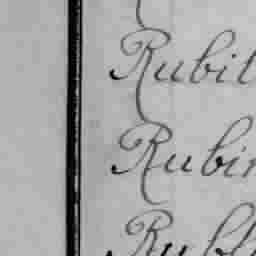 Rubit
Rubin
Rubb